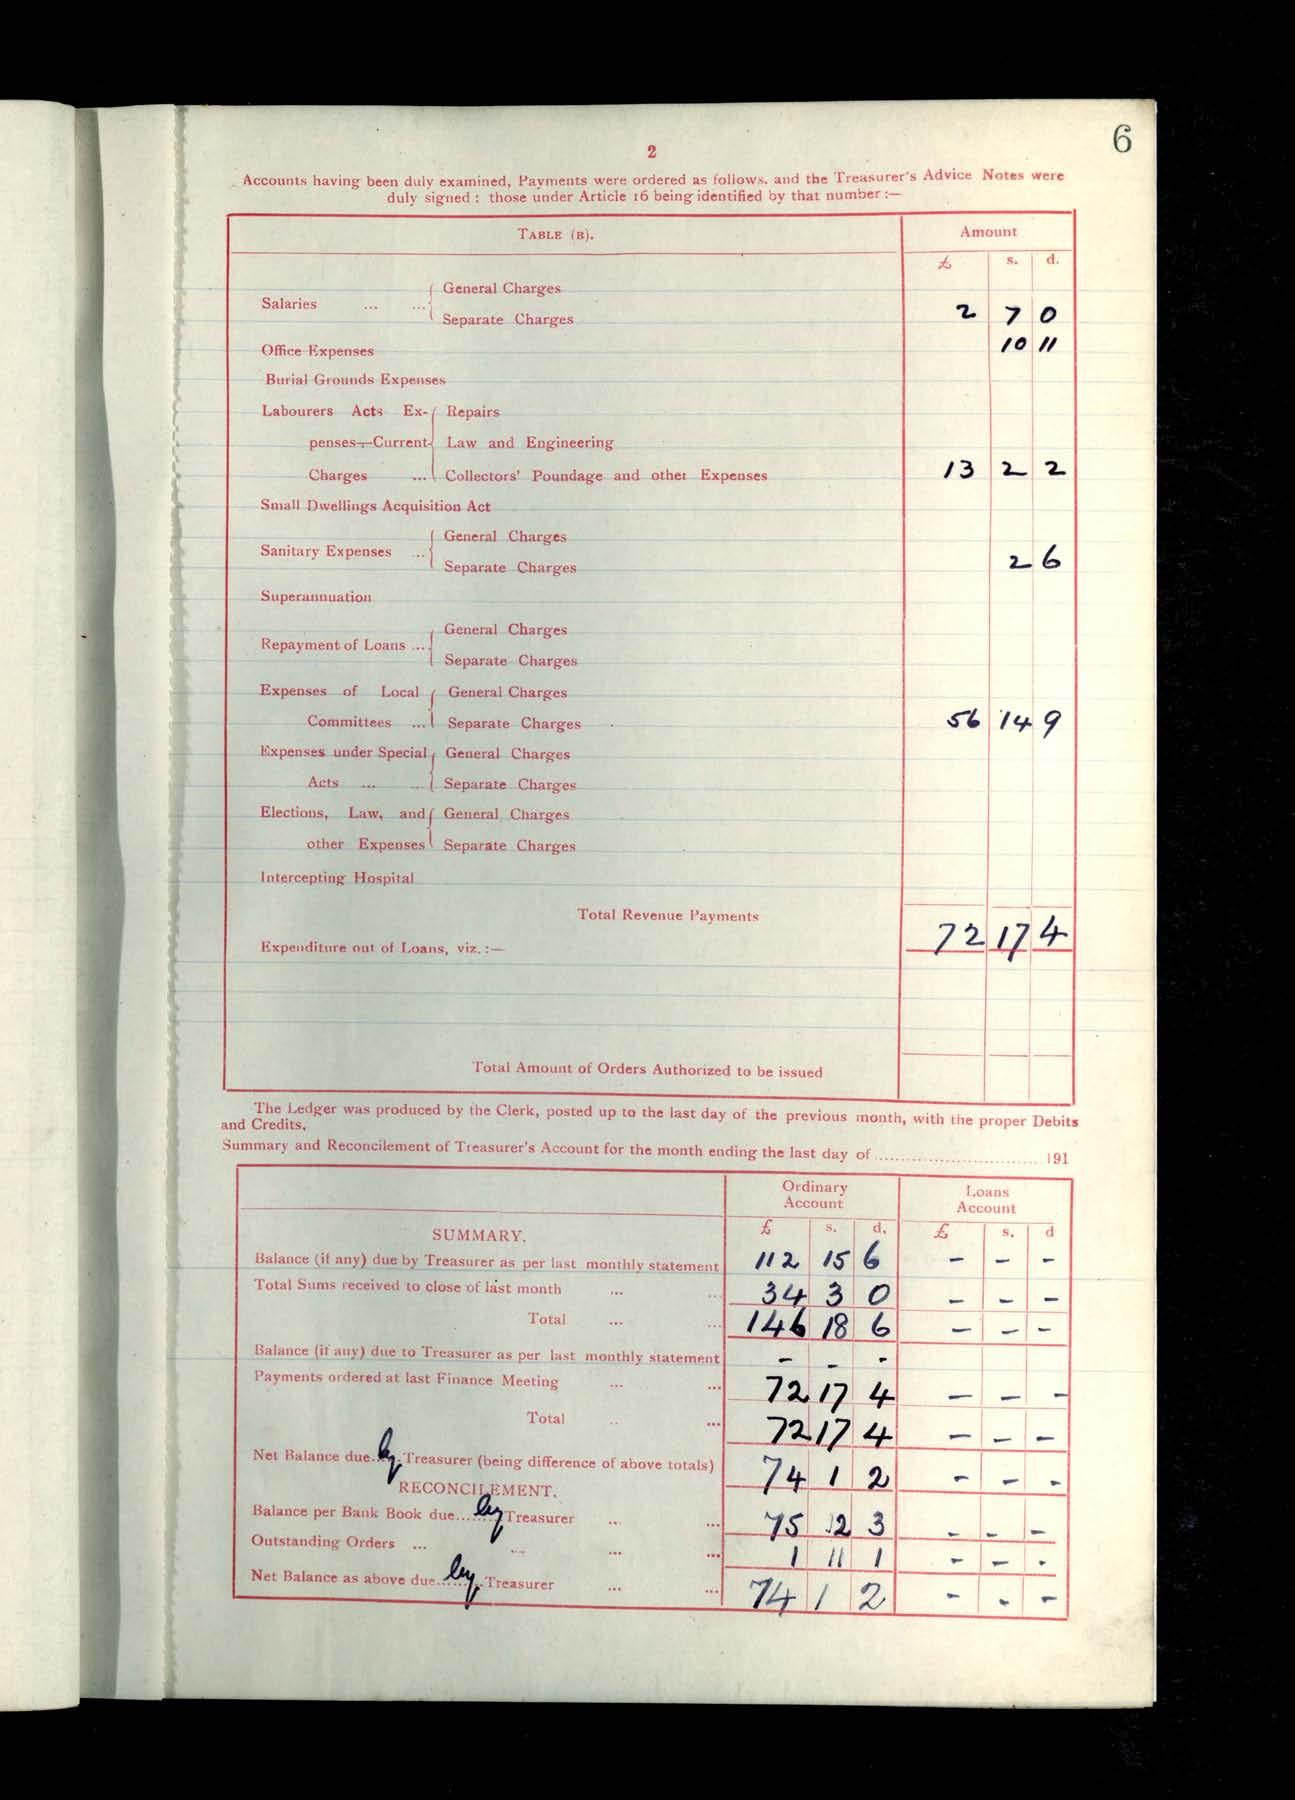 6
2
Accounts having been duly examined, Payments were ordered as follows, and the Treasurer's Advice Notes were
duly signed : those under Article 16 being identified by that number :—
TABLE (B). Amount
£ s. d.
General Charges
Salaries ... ...
Separate Charges 2 7 0
Office Expenses 10 11
Burial Grounds Expenses
Labourers Acts Ex- Repairs
penses—Current Law and Engineering
Charges ... Collectors' Poundage and other Expenses 13 2 2
Small Dwellings Acquisition Act
General Charges
Sanitary Expenses ...
Separate Charges 2 6
Superannuation
General Charges
Repayment of Loans ...
Separate Charges
Expenses of Local General Charges
Committees ... Separate Charges 56 14 9
Expenses under Special General Charges
Acts ... ... Separate Charges
Elections, Law, and General Charges
other Expenses Separate Charges
Intercepting Hospital
Total Revenue Payments 72 17 4
Expenditure out of Loans, viz. :—
Total Amount of Orders Authorized to be issued
The Ledger was produced by the Clerk, posted up to the last day of the previous month, with the proper Debits
and Credits.
Summary and Reconcilement of Treasurer's Account for the month ending the last day of .............................. 191
Ordinary Account Loans Account
SUMMARY. £ s. d. £ s. d
Balance (if any) due by Treasurer as per last monthly statement 112 15 6 - - -
Total Sums received to close of last month ... ... 34 3 0 - - -
Total ... ... 146 18 6 - - -
Balance (if any) due to Treasurer as per last monthly statement - - -
Payments ordered at last Finance Meeting ... ... 72 17 4 - - -
Total .. ... 72 17 4 - - -
Net Balance due by Treasurer (being difference of above totals) 74 1 2 - - -
RECONCILEMENT.
Balance per Bank Book due by Treasurer ... ... 75 12 3 - - -
Outstanding Orders ... ... ... ... 1 11 1 - - -
Net Balance as above due by Treasurer ... ... 74 1 2 - - -